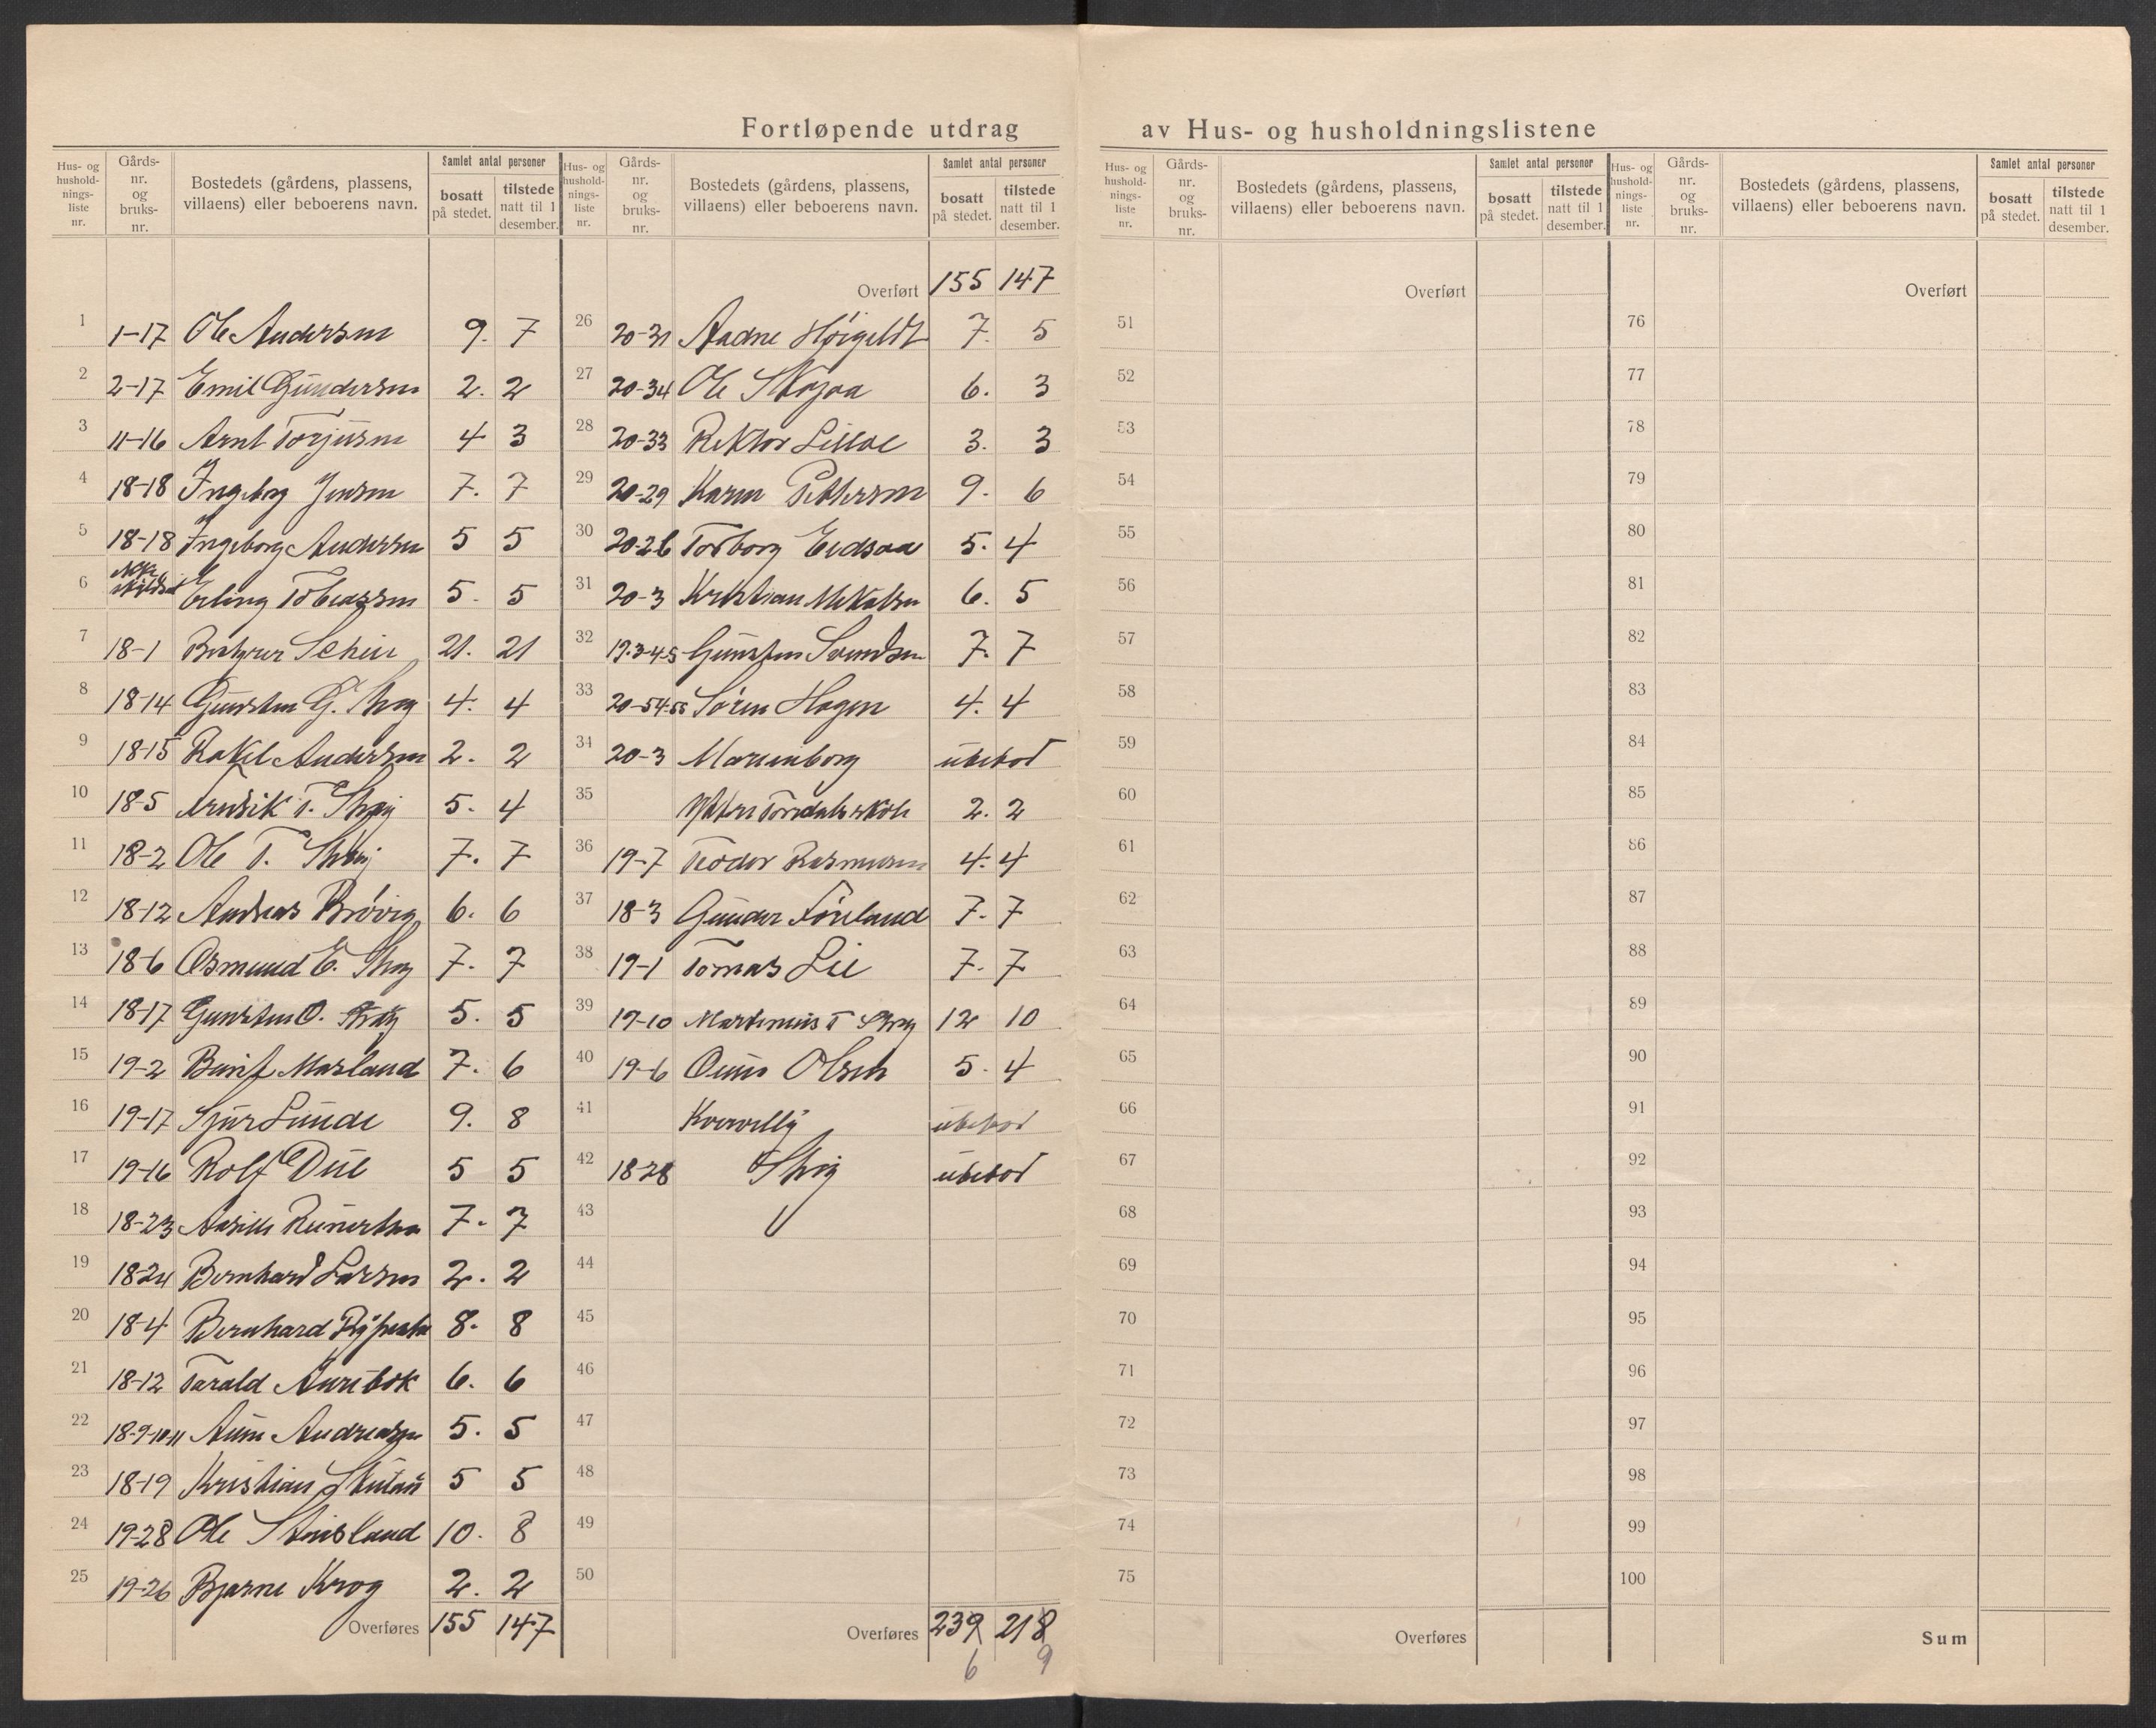 Fortløpende utdrag av Hus- og husholdningslistene
Hus- og hushold-nings-liste nr. Gårds-nr. og bruks-nr. Bostedets (gårdens, plassens, villaens) eller beboerens navn. Samlet antal personer bosatt på stedet. tilstede natt til 1 desember.
1 1-17 Ole Andersen 9. 7
2 2-17 Emil Gundersen 2. 2
3 11-16 Arnt Torjusen 4 3
4 18-18 Ingeborg Jensen 7. 7
5 18-18 Ingeborg Andersen 5 5
6 Erling Tobiassen 5. 5
7 18-1 Schei 21. 21
8 18-14 Gunsten G. Stray 4. 4
9 18-15 Rakel Andersen 2. 2
10 18-5 T. Stray 5. 4
11 18-2 Ole T. Stray 7. 7
12 18-12 Andreas Brøvig 6. 6
13 18-6 Osmund E. Stray 7. 7
14 18-17 Gunsten O. Stray 5. 5
15 19-2 Marland 7. 6
16 19-17 Sjur Lunde 9. 8
17 19-16 Rolf Due 5 5
18 18-23 7. 7
19 18-24 Bernhard Larsen 2. 2
20 18-4 Bernhard 8. 8
21 18-12 Tarald Aurebek 6. 6
22 18-9-10-11 Andreassen 5. 5
23 18-19 Kristian 5 5
24 19-28 Ole Stensland 10. 8
25 19-26 Bjarne Krog 2. 2
Overføres 155 147
Hus- og hushold-nings-liste nr. Gårds-nr. og bruks-nr. Bostedets (gårdens, plassens, villaens) eller beboerens navn. Samlet antal personer bosatt på stedet. tilstede natt til 1 desember.
Overført 155 147
26 20-31 Aadne Høigeldt 7. 5
27 20-34 Ole Skajaa 6. 3
28 20-33 Rektor 3. 3
29 20-29 Karen Pettersen 9. 6
30 20-26 Torborg Eidsaa 5. 4
31 20-3 Kristian Mikalsen 6. 5
32 19-3-4-5 Gunsten Svendsen 7. 7
33 20-54-55 Søren Hagen 4. 4
34 20-3 Marienborg ubebod
35 2. 2
36 19-7 Peder Rasmussen 4. 4
37 18-3 Gunder Føreland 7. 7
38 19-1 Tomas Lie 7. 7
39 19-10 Martinius T Stray 12 10
40 19-6 Olsen 5. 4
41 ubebod
42 18-28 Stray ubebod
43
44
45
46
47
48
49
50
Overføres 239 218
6 9
Hus- og hushold-nings-liste nr. Gårds-nr. og bruks-nr. Bostedets (gårdens, plassens, villaens) eller beboerens navn. Samlet antal personer bosatt på stedet. tilstede natt til 1 desember.
Overført
51
52
53
54
55
56
57
58
59
60
61
62
63
64
65
66
67
68
69
70
71
72
73
74
75
Overføres
Hus- og hushold-nings-liste nr. Gårds-nr. og bruks-nr. Bostedets (gårdens, plassens, villaens) eller beboerens navn. Samlet antal personer bosatt på stedet. tilstede natt til 1 desember.
Overført
76
77
78
79
80
81
82
83
84
85
86
87
88
89
90
91
92
93
94
95
96
97
98
99
100
Sum